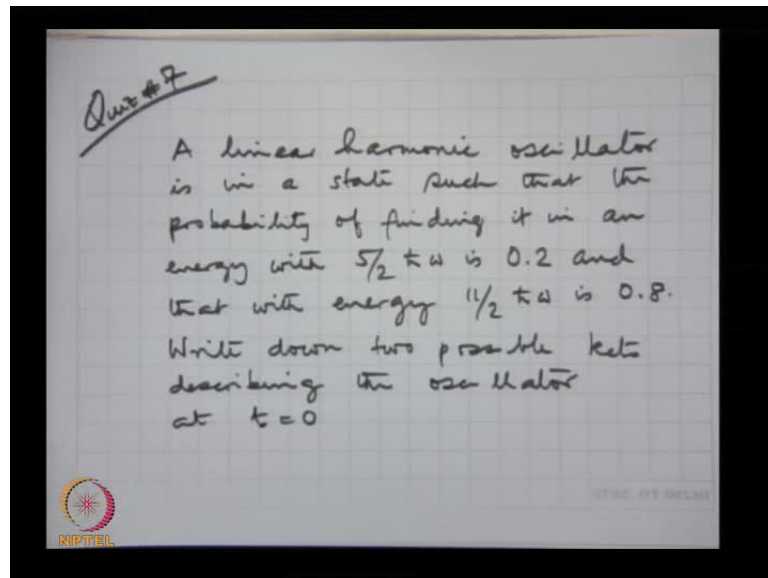 Quiz #7
A linear harmonic oscillator
is in a state such that the
probability of finding it in an
energy with 5/2 ħω is 0.2 and
that with energy 11/2 ħω is 0.8.
Write down two possible kets
describing the oscillator
at t = 0
NPTEL